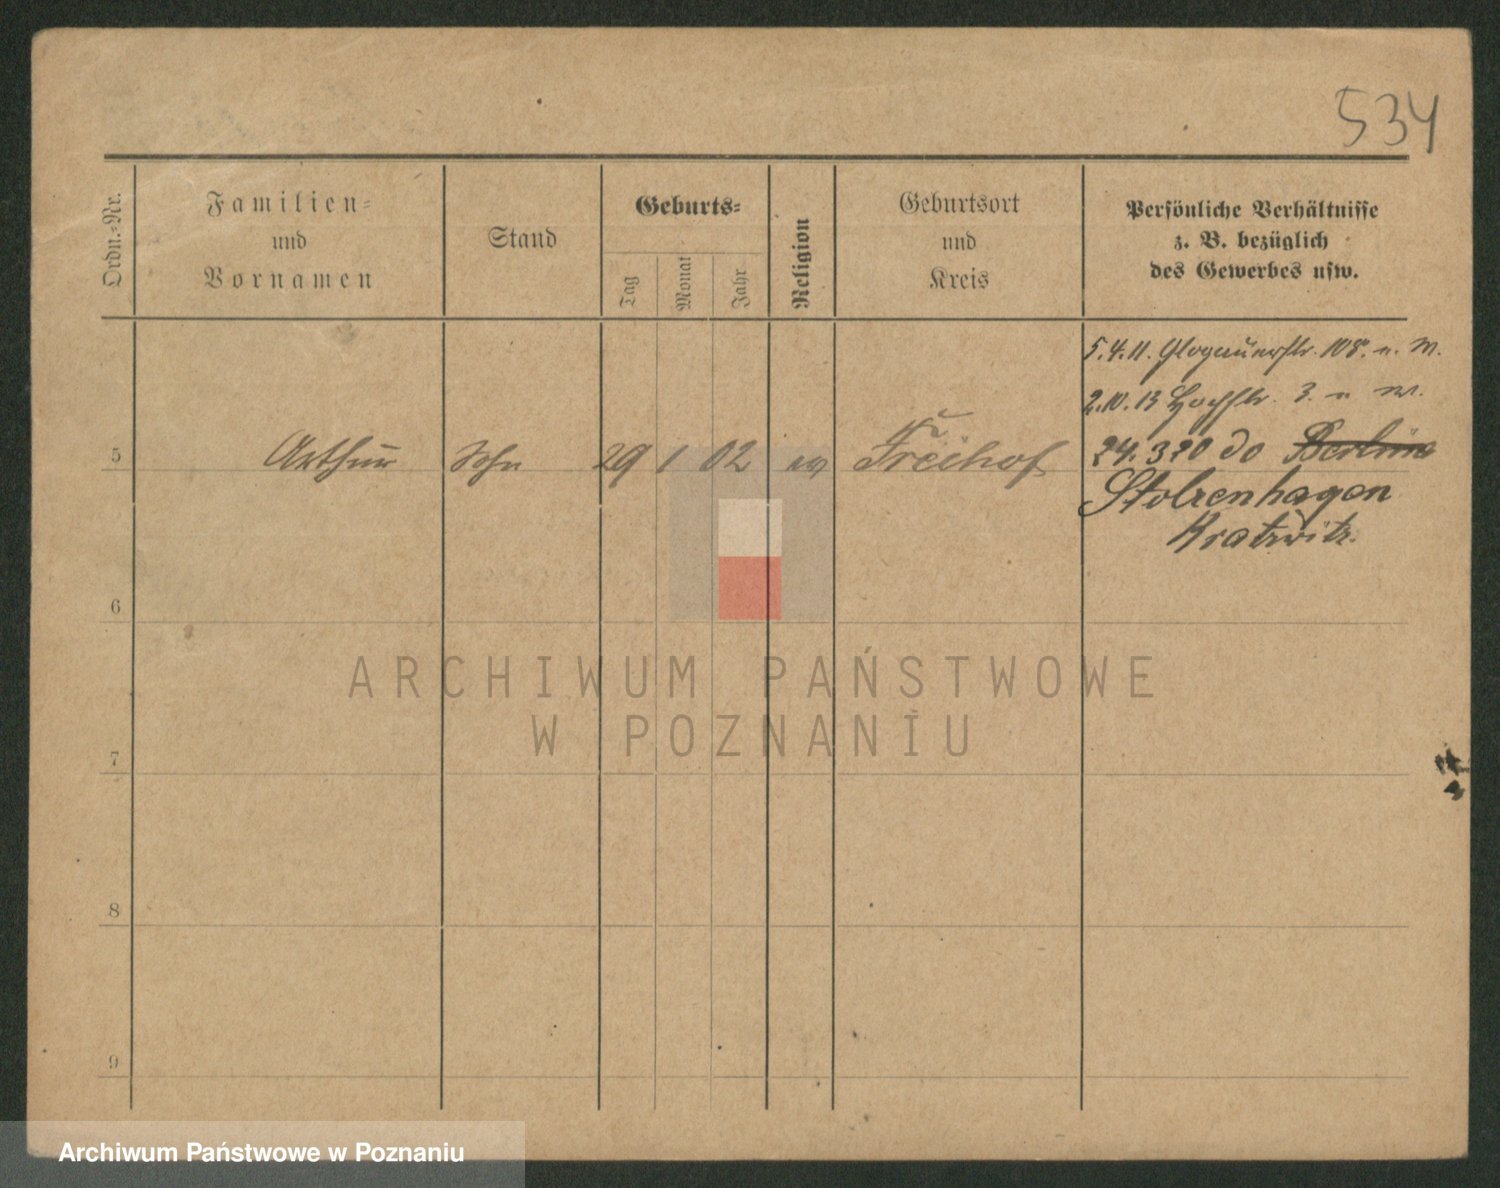 534
Ordn.-Nr.
Familien-
und
Vornamen
Stand
Geburts-
Tag
Monat
Jahr
Religion
Geburtsort
und
Kreis
Persönliche Verhältnisse
z. B. bezüglich
des Gewerbes usw.
5.4.11. Glogauerstr. 108. n. W.
2.10.13 Hochstr. 3. n W.
5 Arthur Sohn 29 1 02 ev Freihof 24.3 20 do Berlin
Stolzenhagen
Kratzwitz.
6
7
8
9
ARCHIWUM PAŃSTWOWE
W POZNANIU
Archiwum Państwowe w Poznaniu